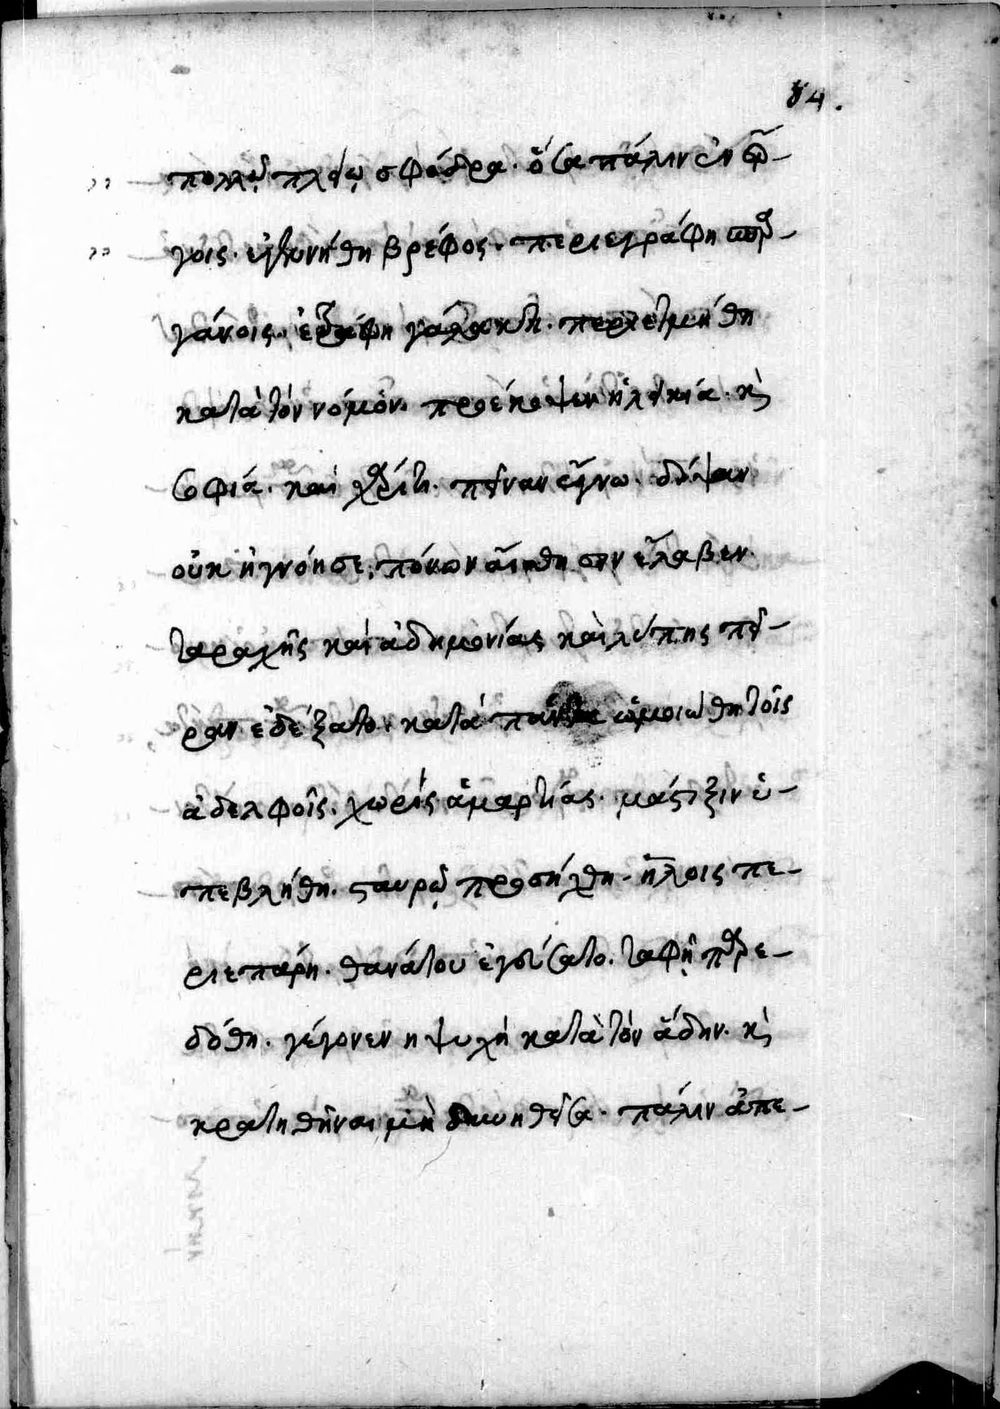 84.
πολλῷ πλείω σφόδρα. ὅσα πάλιν ἐν
γοις. ἐγεννήθη βρέφος. περιεγράφη σπαρ-
γάνοις. ἐτράφη γάλακτι. περιετμήθη
κατὰ τὸν νόμον. προέκοψεν ἡλικία. κὶ
σοφιά. καὶ χάριτι. πεῖναν ἔγνω. δίψαν
οὐκ ἠγνόησε. πόνων αἴσθησιν ἔλαβεν.
ταραχῆς καὶ ἀδημονίας καὶ λύπης πεῖ-
ραν ἐδέξατο. κατὰ πάντα ὡμοιώθη τοῖς
ἀδελφοῖς. χωρὶς ἁμαρτίας. μάστιξιν ὑ-
πεβλήθη. σταυρῷ προσήχθη. ἥλοις πε-
ριεπάρη. θανάτου ἐγεύσατο. ταφῇ παρε-
δόθη. γέγονεν η ψυχὴ κατὰ τὸν ἅδην. κὶ
κρατηθῆναι μὴ δυνηθεῖσα. πάλιν ἀπε-